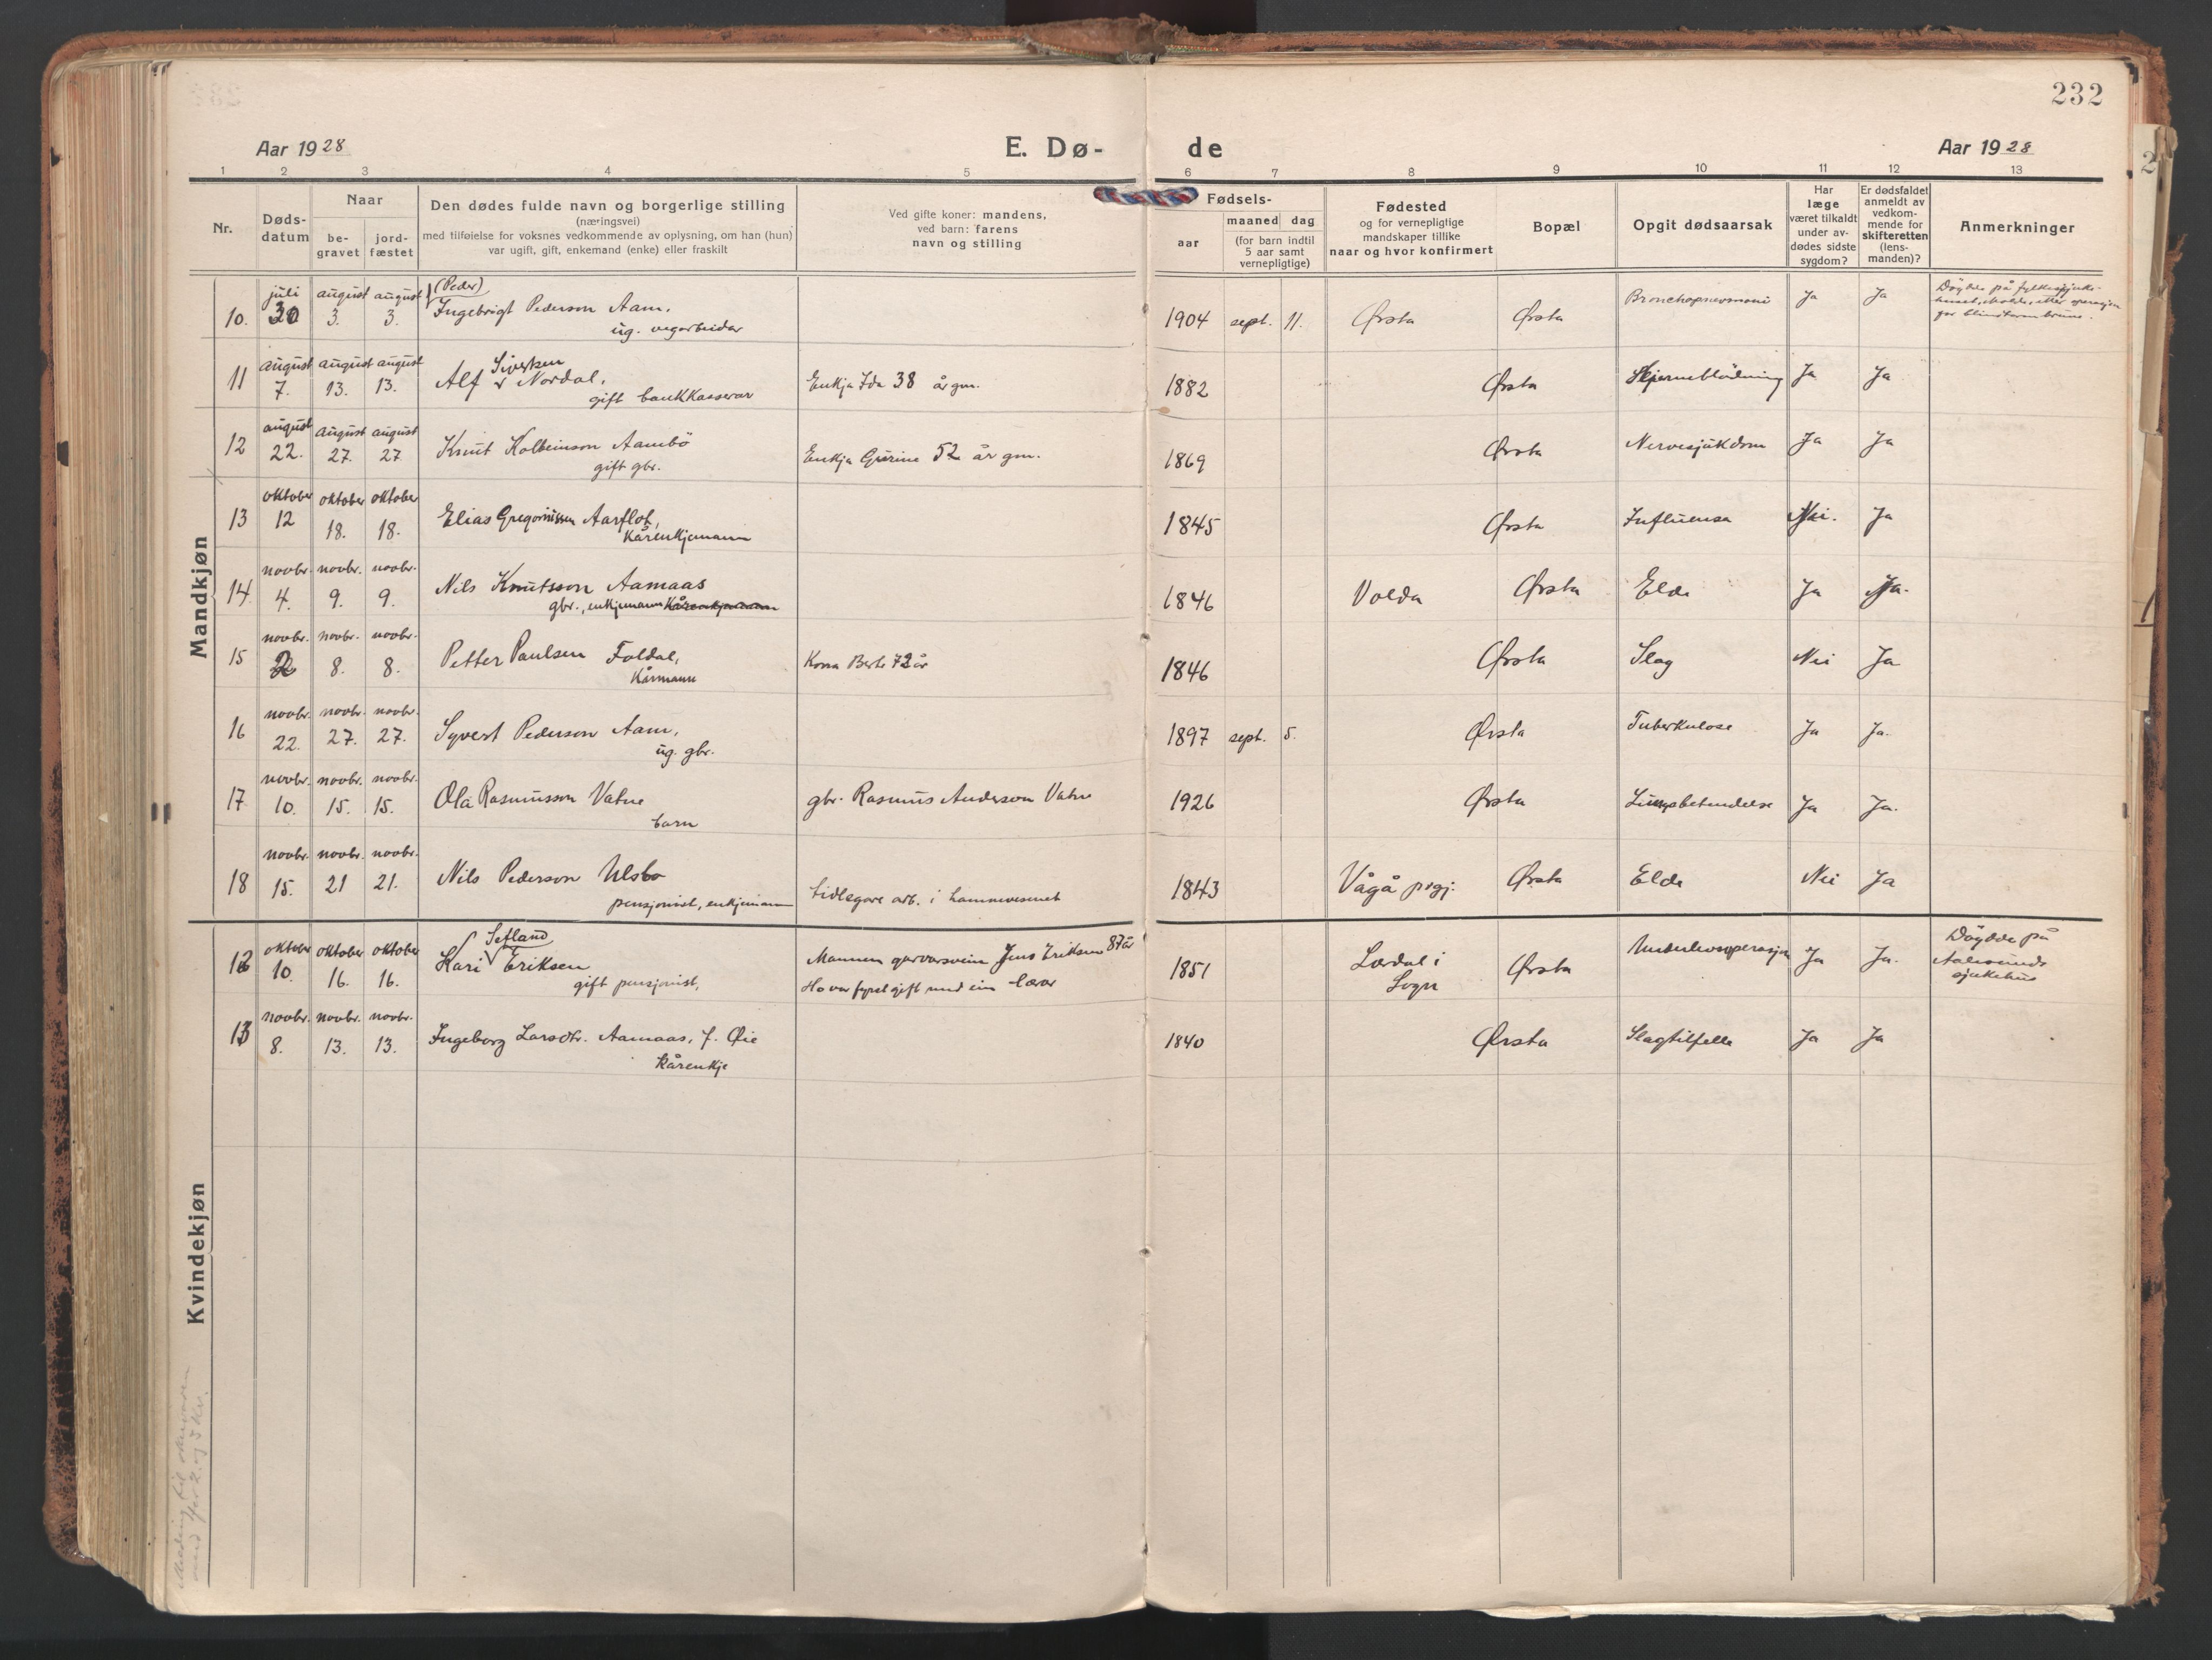 232
Aar 1928 E. Dø- de Aar 1928
1 2 3 4 5 6 7 8 9 10 11 12 13
Nr.
Døds-
datum
Naar
be-
gravet
jord-
fæstet
Den dødes fulde navn og borgerlige stilling
(næringsvei)
med tilføielse for voksnes vedkommende av oplysning, om han (hun)
var ugift, gift, enkemand (enke) eller fraskilt
Ved gifte koner: mandens,
ved barn: farens
navn og stilling
Fødsels-
aar
maaned dag
(for barn indtil
5 aar samt
vernepligtige)
Fødested
og for vernepligtige
mandskaper tillike
naar og hvor konfirmert
Bopæl
Opgit dødsaarsak
Har
læge
været tilkaldt
under av-
dødes sidste
sygdom?
Er dødsfaldet
anmeldt av
vedkom-
mende for
skifteretten
(lens-
manden)?
Anmerkninger
Mandkjøn
juli august august (Peder)
10. 30 3. 3. Ingebrigt Pederson Aam, 1904 sept. 11. Ørsta Ørsta Bronchopneumoni Ja Ja Døydde på fylkessjuke-
ug. vegarbeidar huset, Molde, etter operasjon
for blindtarmbrune.
august august august Siversen
11 7. 13. 13. Alf Nordal, Enkja Ida 38 år gm. 1882 Ørsta Hjerneblødning Ja Ja
gift bankkasserar
august august august
12 22. 27. 27 Knut Kolbeinson Aambö Enkja Gurine 52 år gm. 1869 Ørsta Nervesjukdom Ja Ja
gift gbr.
oktober oktober oktober
13 12 18. 18. Elias Gregoriussen Aarflot, 1845 Ørsta Influensa Nei. Ja
Kårenkjemann
novbr. novbr. novbr.
14. 4. 9. 9. Nils Knutsson Aamaas 1846 Volda Ørsta Elde Ja Ja.
gbr., enkjemann Kårenkjemann
novbr. novbr. novbr.
15 2 8. 8. Petter Paulsen Foldal, Kona Berte 72 år 1846 Ørsta Slag Nei Ja
Kårmann
novbr. novbr. novbr.
16 22. 27. 27. Syvert Pederson Aam, 1897 sept. 5. Ørsta Tuberkulose Ja Ja.
ug. gbr.
novbr. novbr. novbr.
17 10. 15. 15. Ola Rasmusson Vatne gbr. Rasmus Anderson Vatne 1926 Ørsta Lungebetendelse Ja Ja.
barn
novbr. novbr. novbr.
18 15. 21 21. Nils Pederson Ulsbo 1843 Vågå prgj. Ørsta Elde Nei Ja
pensjonist, enkjemann tidlegare arb. i hamnevesenet
Kvindekjøn
oktober oktober oktober Sefland
12 10. 16. 16. Kari Eriksen Mannen garvarsvein Jens Eriksen 87 år 1851 Lærdal i Sogn Ørsta Underlivsoperasjon Ja Ja. Døydde på
gift pensjonist, Ho var fyrst gift med ein lærar Aalesunds
sjukehus
novbr. novbr. novbr.
13 8. 13. 13. Ingeborg Larsdtr. Aamaas, f. Øie 1840 Ørsta Slagtilfelle Ja Ja
kårenkje
Melding til